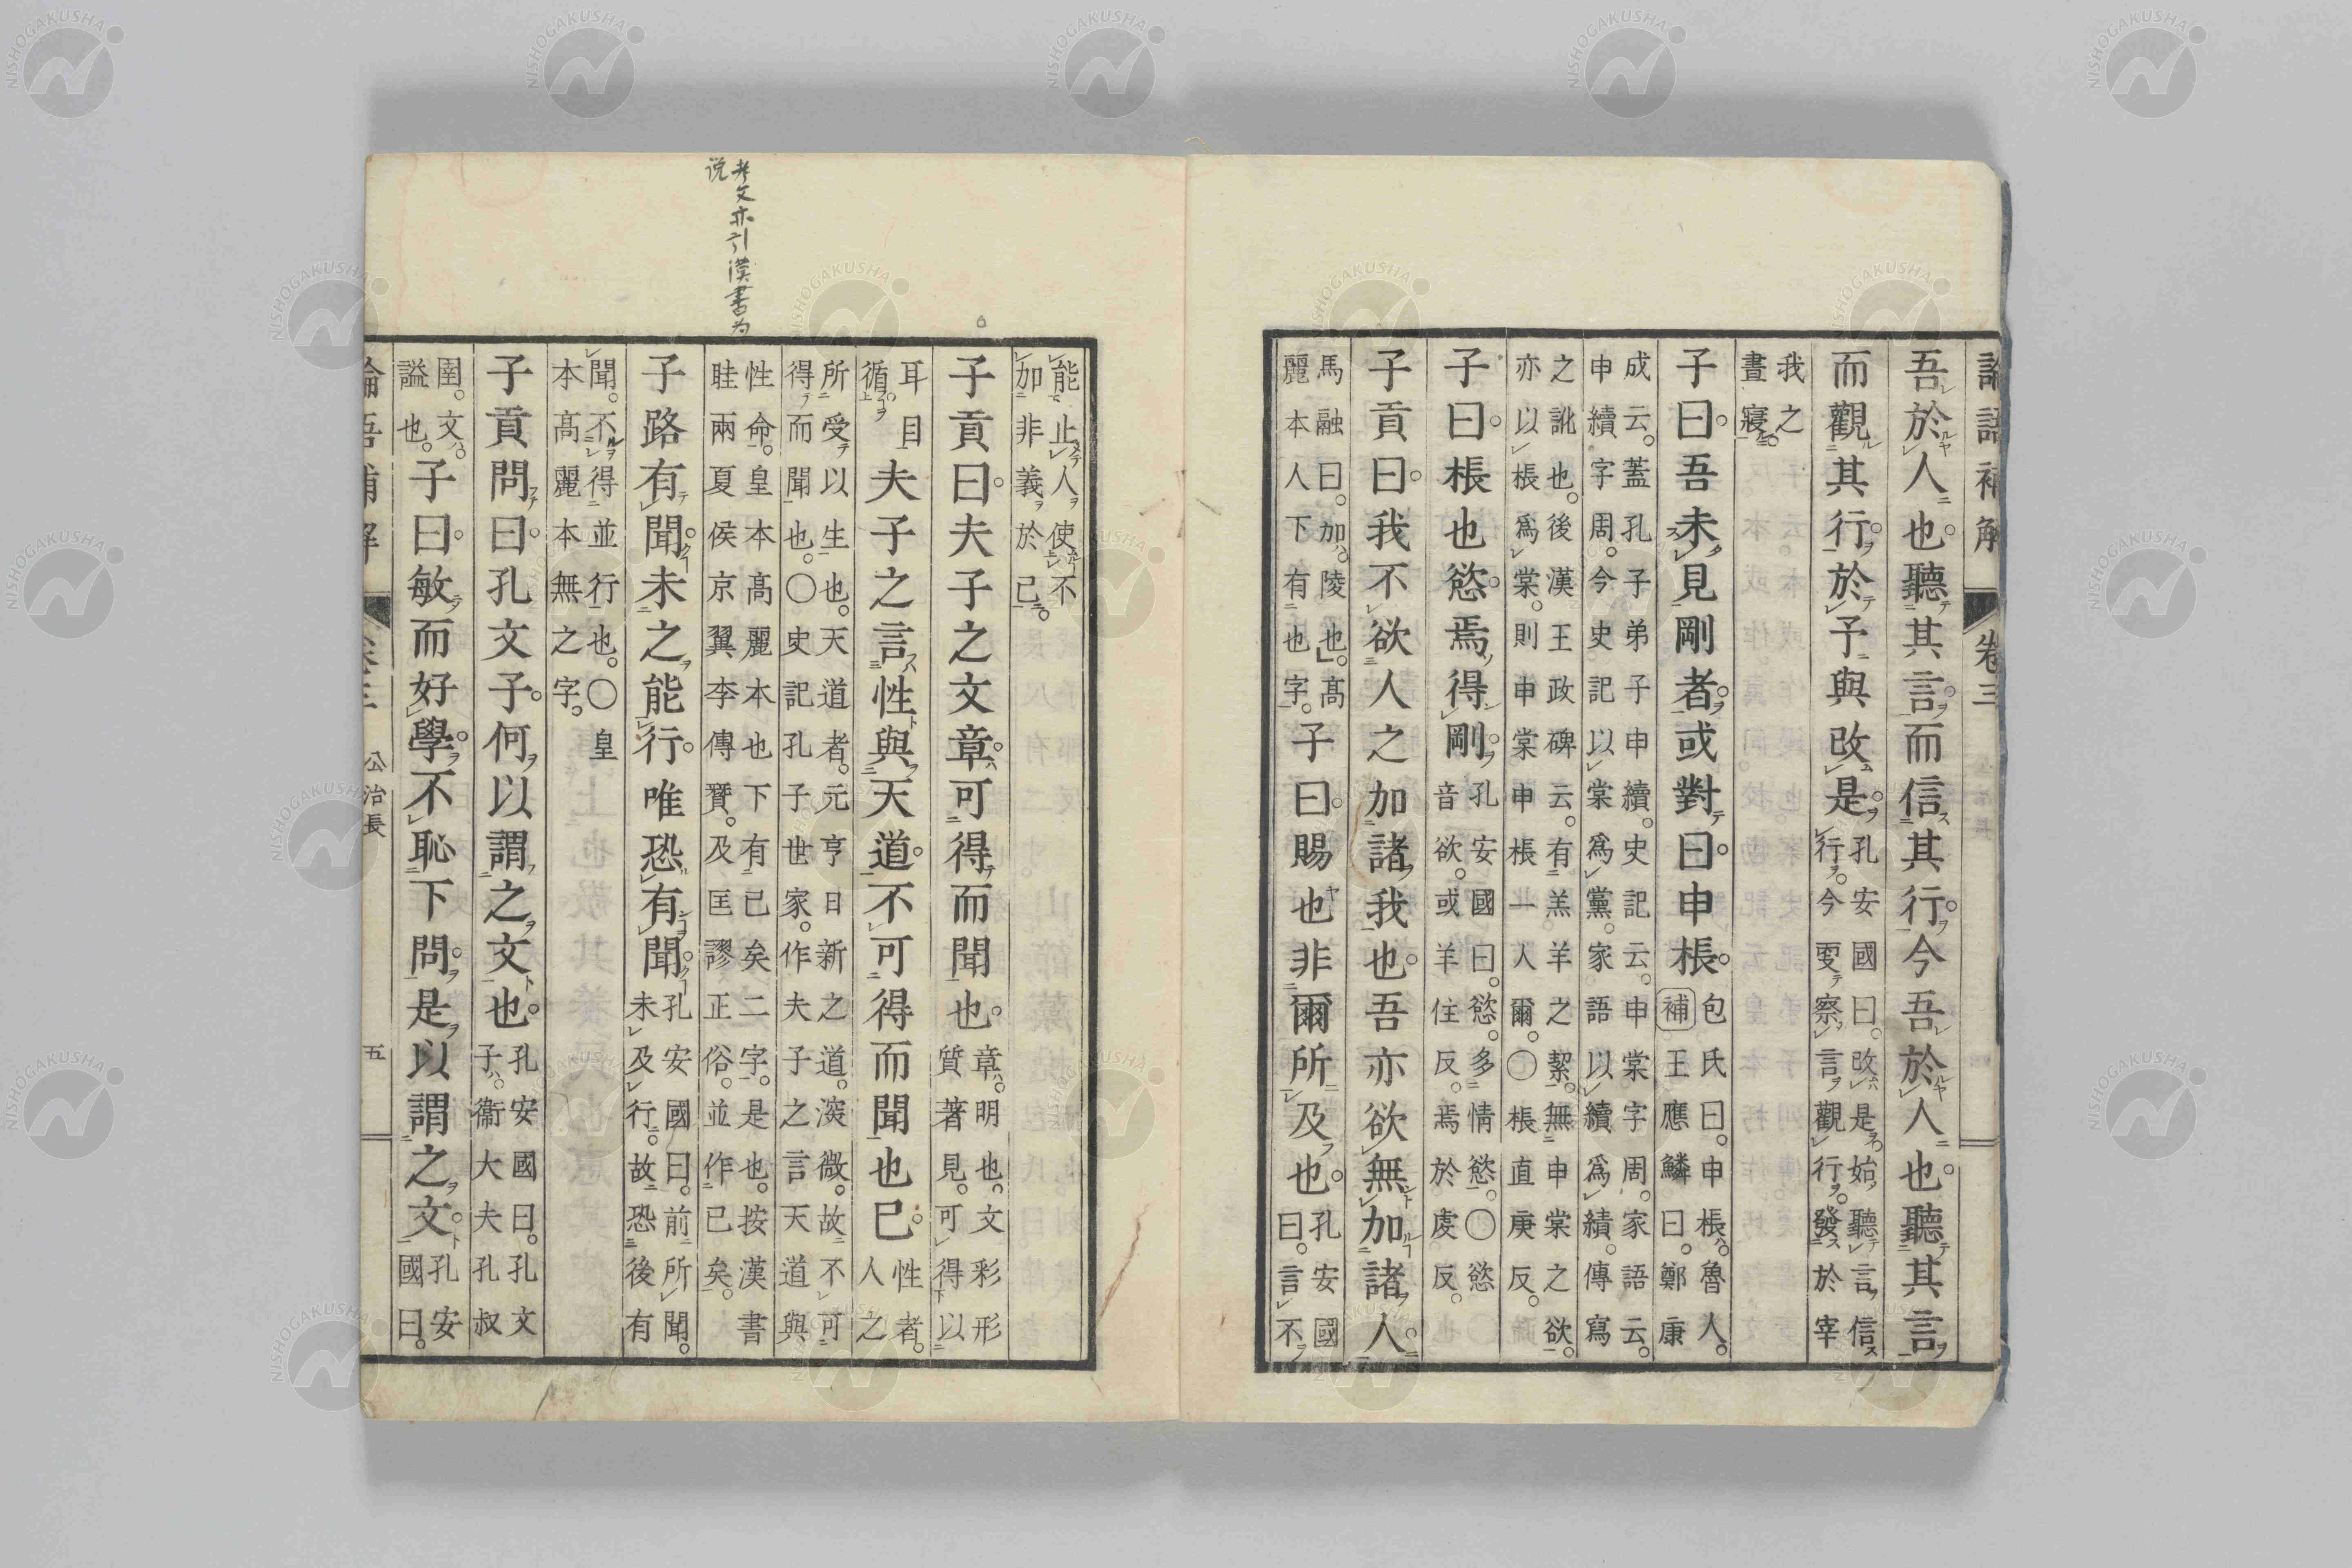 論語補解 卷三
吾於人也。聽其言。而信其行。今吾於人也。聽其言
而觀其行。於予與改是。
孔安國曰。改是。始聽言信
行。今更察言觀行。發於宰
我之
晝寢。
子曰。吾未見剛者。或對曰。申棖。
包氏曰。申棖。魯人。
補王應麟曰。鄭康
成云。蓋孔子弟子申續。史記云。申棠字周。家語云。
申續字周。今史記以棠爲黨。家語以續爲績。傳寫
之訛也。後漢王政碑云。有羔羊之絜。無申棠之欲。
亦以棖爲棠。則申棠申棖一人爾。〇棖直庚反。
子曰。棖也慾。焉得剛。
孔安國曰。慾。多情慾。〇慾
音欲。或羊住反。焉於虔反。
子貢曰。我不欲人之加諸我也。吾亦欲無加諸人。
馬融曰。加。陵也。高
麗本人下有也字。
子曰。賜也非爾所及也。
孔安國
曰。言不
能止人使不
加非義於己。
子貢曰。夫子之文章。可得而聞也。
章。明也。文彩形
質著見。可得以
耳目
循。
夫子之言性與天道。不可得而聞也已。
性者。
人之
所受以生也。天道者。元亨日新之道。深微。故不可
得而聞也。〇史記孔子世家。作夫子之言天道與
性命。皇本高麗本也下有已矣二字。是也。按漢書
眭兩夏侯京翼李傳贊。及匡謬正俗。並作已矣。
子路有聞。未之能行。唯恐有聞。
孔安國曰。前所聞。
未及行。故恐後有
聞。不得並行也。〇皇
本高麗本無之字。
子貢問曰。孔文子。何以謂之文也。
孔安國曰。孔文
子。衞大夫孔叔
圉。文。
謚也。
子曰。敏而好學。不恥下問。是以謂之文。
孔安
國曰。
論語補解 卷三 公冶長 五
考文亦引漢書为
说